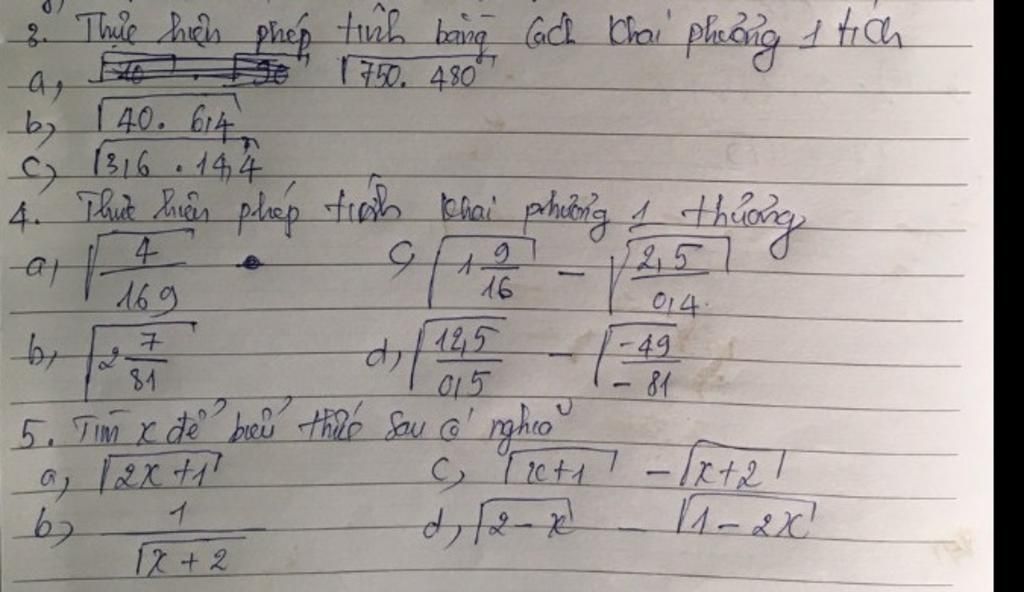 3. Thực hiện phép tính bằng cách khai phương 1 tích
a, √750. 480
b, √40. 6,4
c, √3,6 . 14,4
4. Thực hiện phép tính khai phương 1 thương
a, √4/169 c, √1 9/16 - √2,5/0,4
b, √2 7/81 d, √12,5/0,5 - √-49/-81
5. Tìm x để biểu thức sau có nghĩa
a, √2x+1 c, √x+1 - √x+2
b, 1/√x+2 d, √2-x - √1-2x